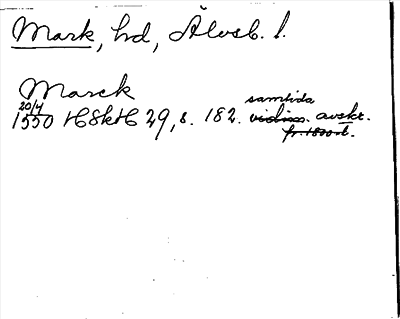 Mark, hd, Älvsb. l.
Marck
20/4
1550 HSkH 29, s. 182. vidim. avskr.
samtida
fr. 1800-t.